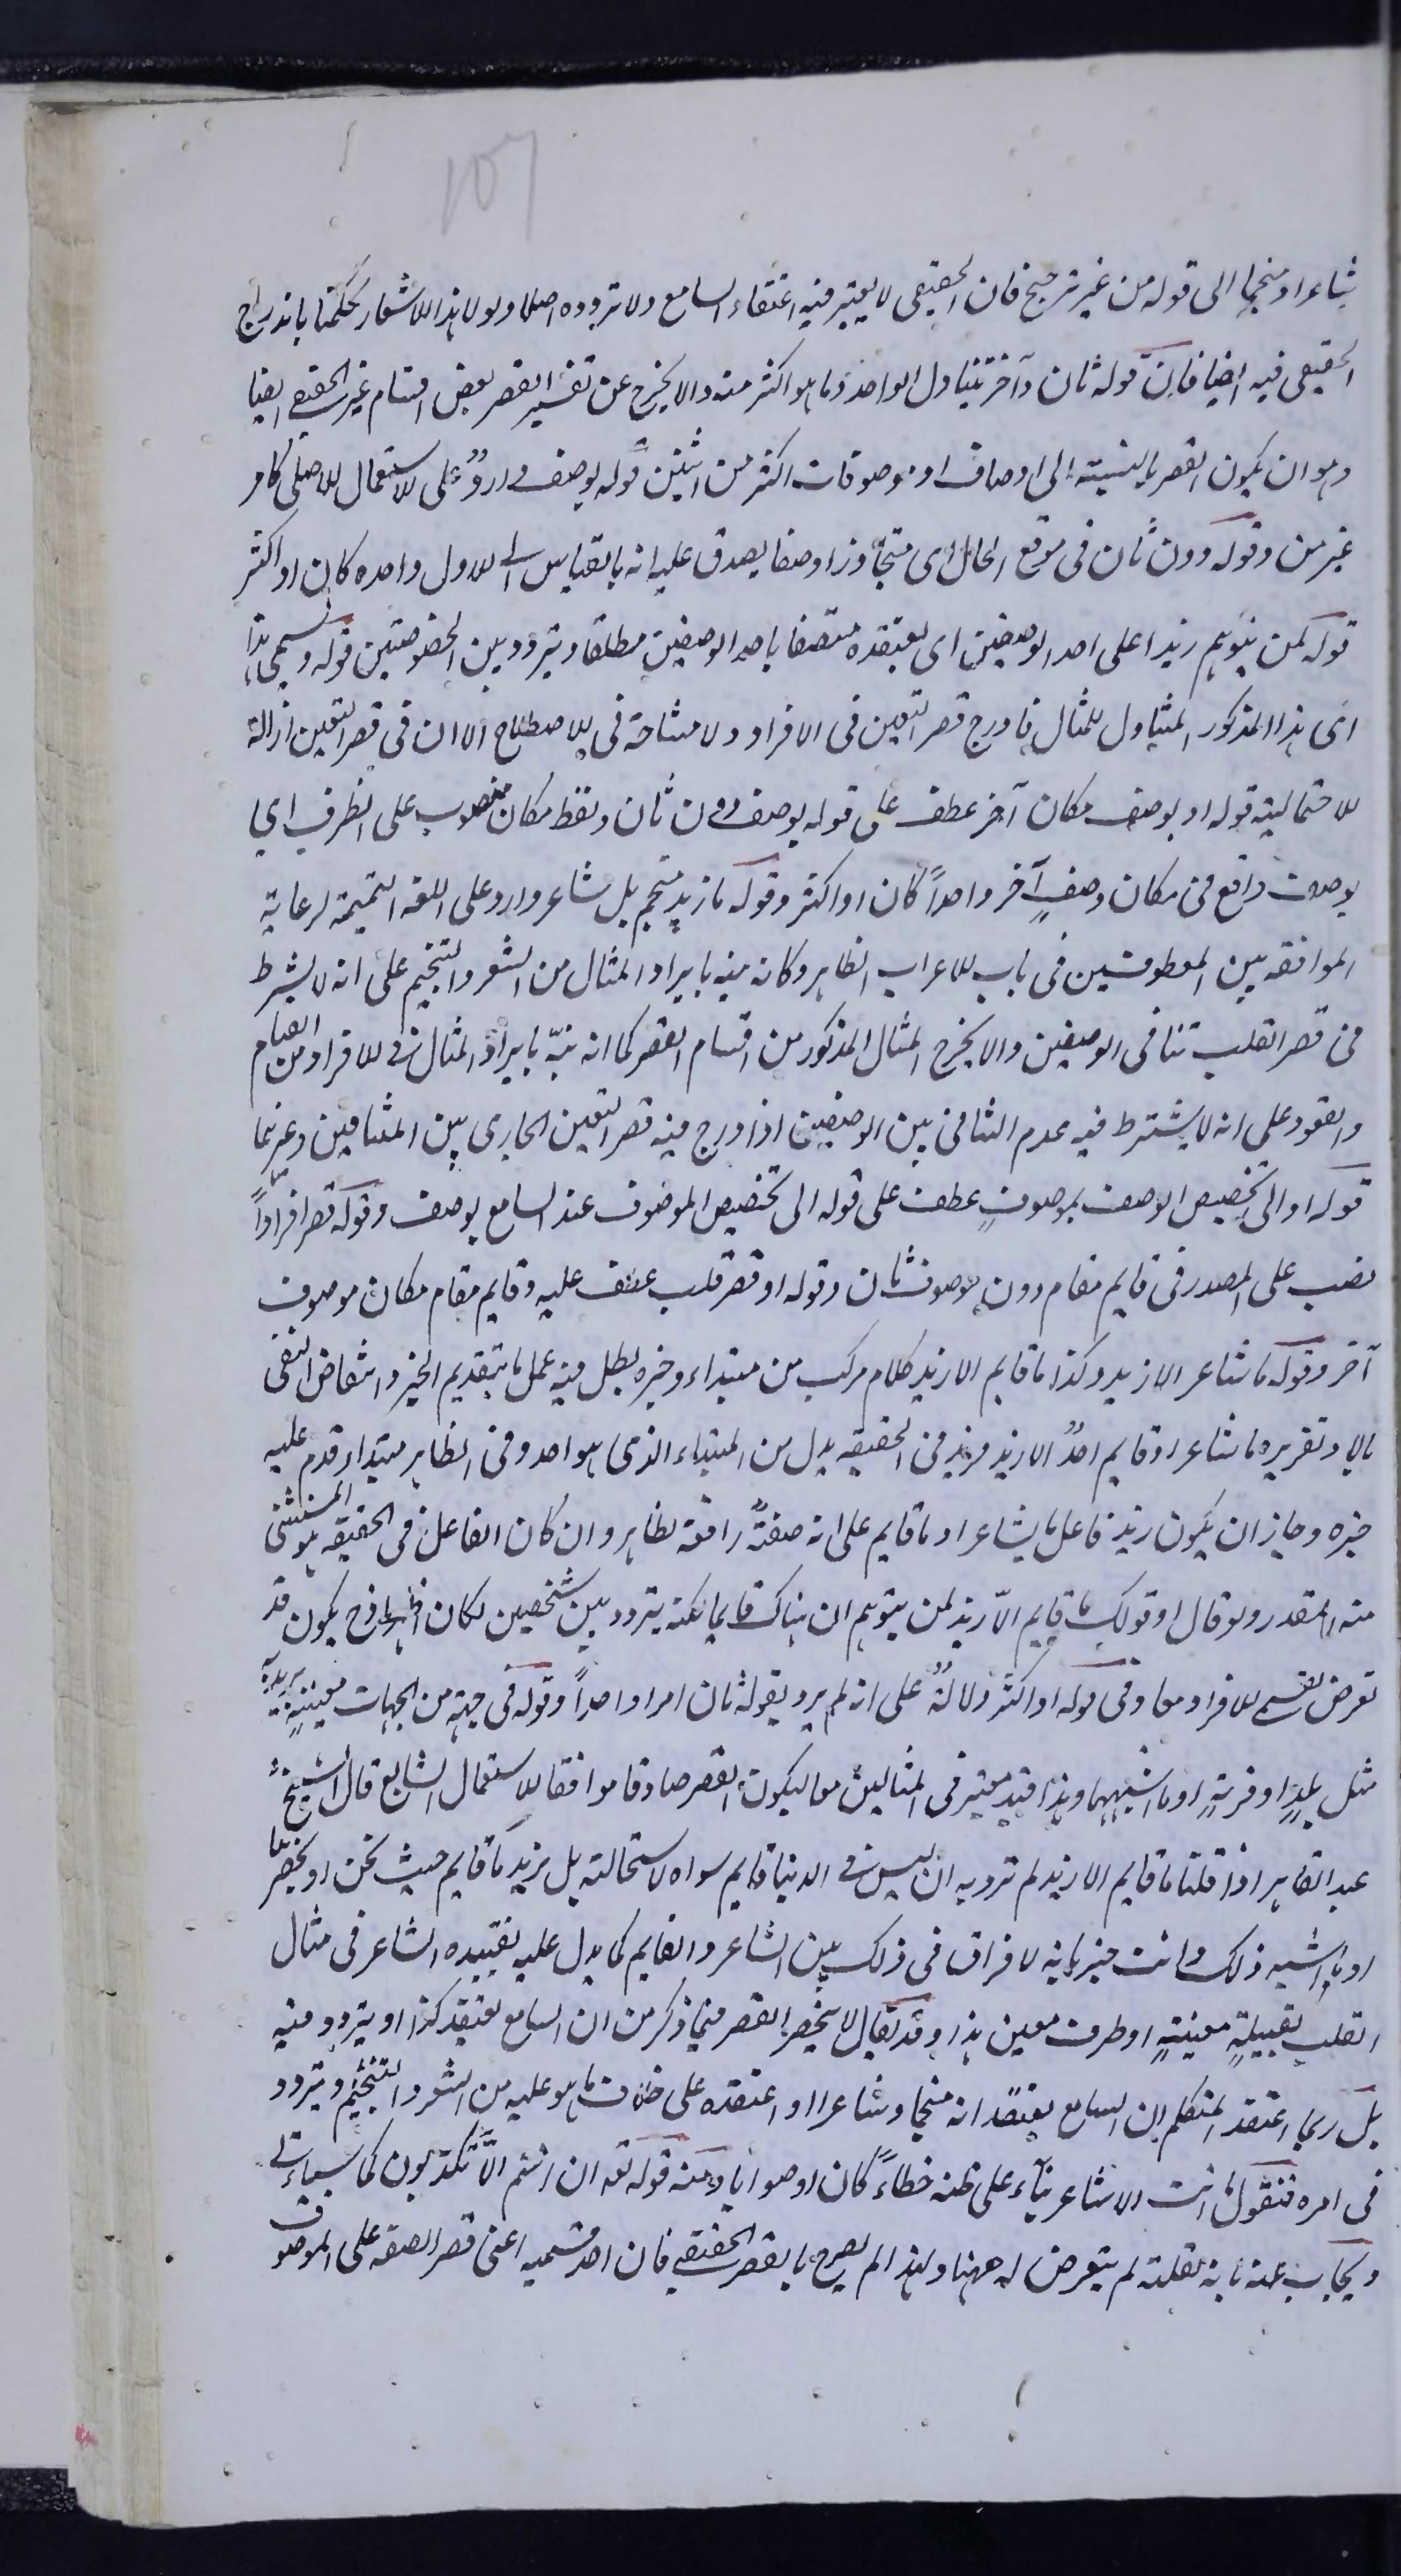 107
شاعرا ومنجما الى قوله من غير ترجيح فان الحقيقى لا يعتبر فيه اعتقاد السامع ولا تردده اصلا ولولا هذا الاشعار لحكمنا باندراج
الحقيقى فيه ايضا فان قوله ثان وآخر يتناول الواحد وما هو اكثر منه والا يخرج عن تفسير القصر بعض اقسام غير الحقيقى ايضا
وهو ان يكون القصر بالنسبة الى اوصاف او موصوفات اكثر من اثنين قوله بوصف وارد على الاستعمال الاصلى كما مر
غير مرة وقوله دون ثان فى موقع الحال اى متجاوزا وصفا يصدق عليه انه بالقياس الى الاول واحدا كان او اكثر
قوله كمن يتوهم زيدا على احد الوصفين اى يعتقده متصفا باحد الوصفين مطلقا ويتردد بين الخصوصيتين قوله ويسمى هذا
اى هذا المذكور المتناول للمثال فادرج قصر التعيين فى الافراد ولا مشاحة فى الاصطلاح الا ان فى قصر التعيين ازالة
للاحتمالية قوله او بوصف مكان آخر عطف على قوله بوصف دون ثان ولفظ مكان منصوب على الظرف اى
بوصف واقع فى مكان وصف آخر واحدا كان او اكثر وقوله ما زيد منجم بل شاعر وارد على اللغة التميمية لرعاية
الموافقة بين المعطوفين فى باب الاعراب الظاهر وكانه نبه بايراد المثال من الشعر والتنجيم على انه لا يشترط
فى قصر القلب تنافى الوصفين والا يخرج المثال المذكور من اقسام القصر كما انه نبّه بايراد المثال فى الافراد من القيام
والقعود على انه لا يشترط فيه عدم التنافى بين الوصفين اذا درج فيه قصر التعيين الجارى بين المتنافيين وغيرهما
قوله او الى تخصيص الوصف بموصوف عطف على قوله الى تخصيص الموصوف عند السامع بوصف وقوله قصر افراداً
نصب على المصدر فى قايم مقام دون موصوف ثان وقوله او قصر قلب عطف عليه وقايم مقام مكان موصوف
آخر وقوله ما شاعر الا زيد وكذا ما قايم الا زيد كلام مركب من مبتداء وخبره بطل فيه عمل ما بتقديم الخبر وانتقاض النفى
بالا وتقريره ما شاعر او قايم احدٌ الا زيد فزيد فى الحقيقة بدل من المبتداء الذى هو احد وفى الظاهر مبتداء قدم عليه
خبره وجاز ان يكون زيد فاعل ما شاعر او ما قايم على انه صفةٌ رافعة لظاهر وان كان الفاعل فى الحقيقة هو المستثنى
منه المقدر ولو قال او قولك ما قايم الّا زيد لمن يتوهم ان هناك قايما لكنه يتردد بين شخصين لكان اظهر اذ ح يكون قد
تعرض لقسمى الافراد معا وفى قوله او اكثر دلالةٌ على انه لم يرد بقوله ثان امرا واحداً وقوله فى جهة من الجهات معينة يريد به
مثل بلدٍ او قريةٍ او ما اشبههما وهذا قيد معتبر فى المثالين معا ليكون القصر صادقا موافقا للاستعمال الشايع قال الشيخ
عبد القاهر اذا قلنا ما قايم الا زيد لم نرد به ان ليس فى الدنيا قايم سواه لاستحالته بل نريد ما قايم حيث نحن او بحضرتنا
او ما اشبه ذلك وانت خبير بانه لا فراق فى ذلك بين الشاعر والقايم كما يدل عليه تقييده الشاعر فى مثال
القلب بقبيلةٍ معينةٍ او طرف معين هذا وقد يقال لا ينحصر القصر فيما ذكر من ان السامع يعتقد كذا او يتردد فيه
بل ربما اعتقد المتكلم ان السامع يعتقد انه منجما وشاعرا او اعتقده على خلاف ما هو عليه من الشعر والتنجيم ويتردد
فى امره فتقول ما انت الا شاعر بناء على ظنه خطاءً كان او صوابا ومنه قوله تعه ان انتم الّا تكذبون كما سياتى
ويجاب عنه بانه لقلته لم يتعرض له ههنا ولهذا لم يصرح بالقصر الحقيقى فان احد قسميه اعنى قصر الصفة على الموصوف